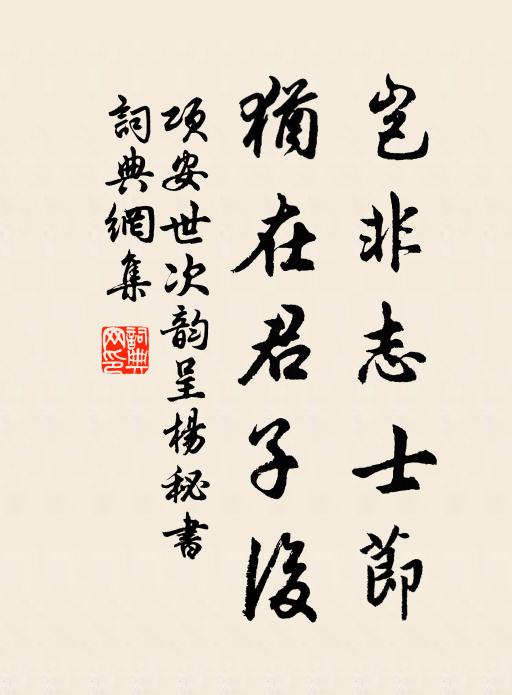 豈非志士節
猶在君子後
項安世次韵呈楊秘書
詞典網集
詞典網印